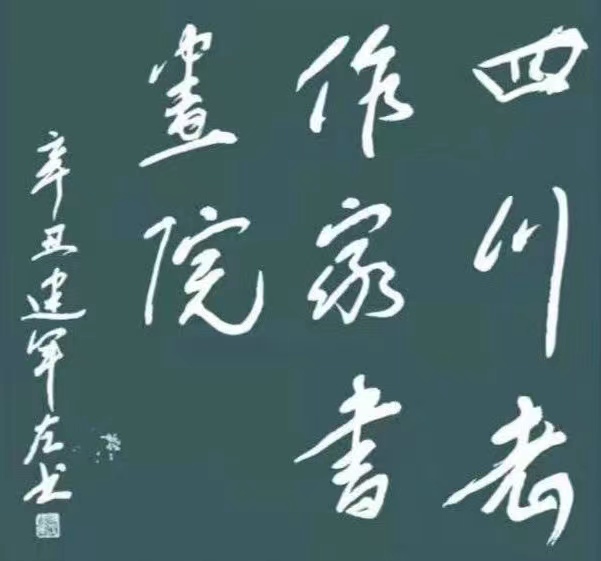 四川老
作家書
畫院
辛丑建军左书